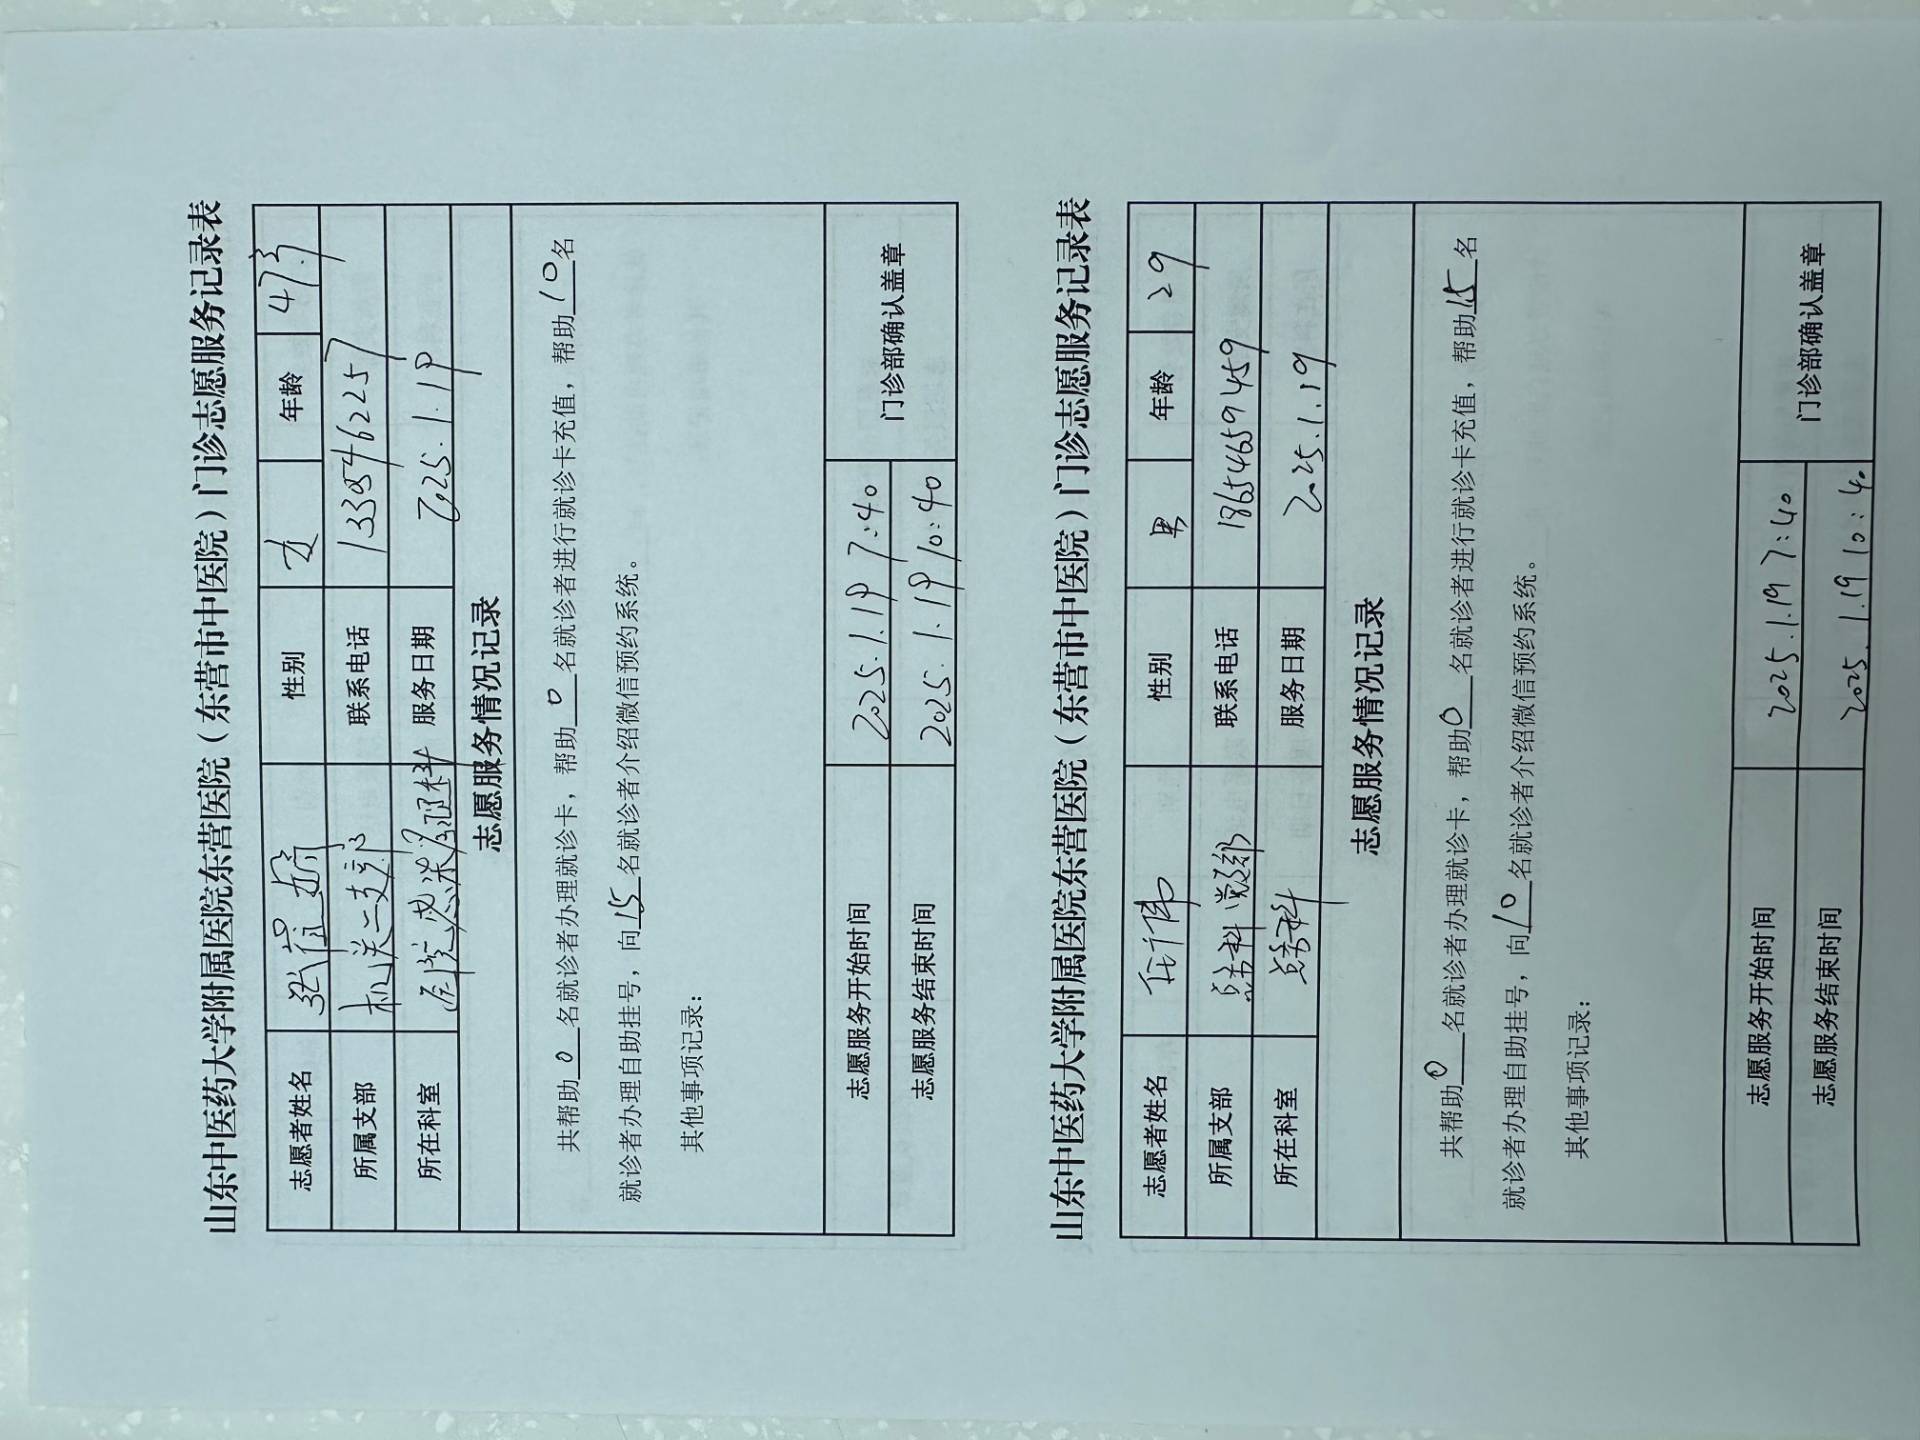 山东中医药大学附属医院东营医院（东营市中医院）门诊志愿服务记录表
志愿者姓名 性别 女 年龄 47岁
所属支部 机关二支部 联系电话 1335462257
所在科室 服务日期 2025.1.19
志愿服务情况记录
共帮助0名就诊者办理就诊卡，帮助0名就诊者进行就诊卡充值，帮助10名
就诊者办理自助挂号，向15名就诊者介绍微信预约系统。
其他事项记录：
志愿服务开始时间 2025.1.19 7:40 门诊部确认盖章
志愿服务结束时间 2025.1.19 10:40
山东中医药大学附属医院东营医院（东营市中医院）门诊志愿服务记录表
志愿者姓名 任伟 性别 男 年龄 29
所属支部 联系电话 18654659459
所在科室 服务日期 2025.1.19
志愿服务情况记录
共帮助0名就诊者办理就诊卡，帮助0名就诊者进行就诊卡充值，帮助15名
就诊者办理自助挂号，向10名就诊者介绍微信预约系统。
其他事项记录：
志愿服务开始时间 2025.1.19 7:40 门诊部确认盖章
志愿服务结束时间 2025.1.19 10:40